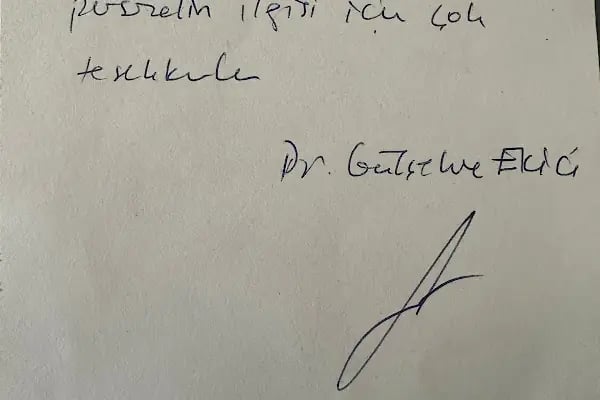 personelin ilgisi için çok
teşekkürler
Dr. Gülşehre Ekici